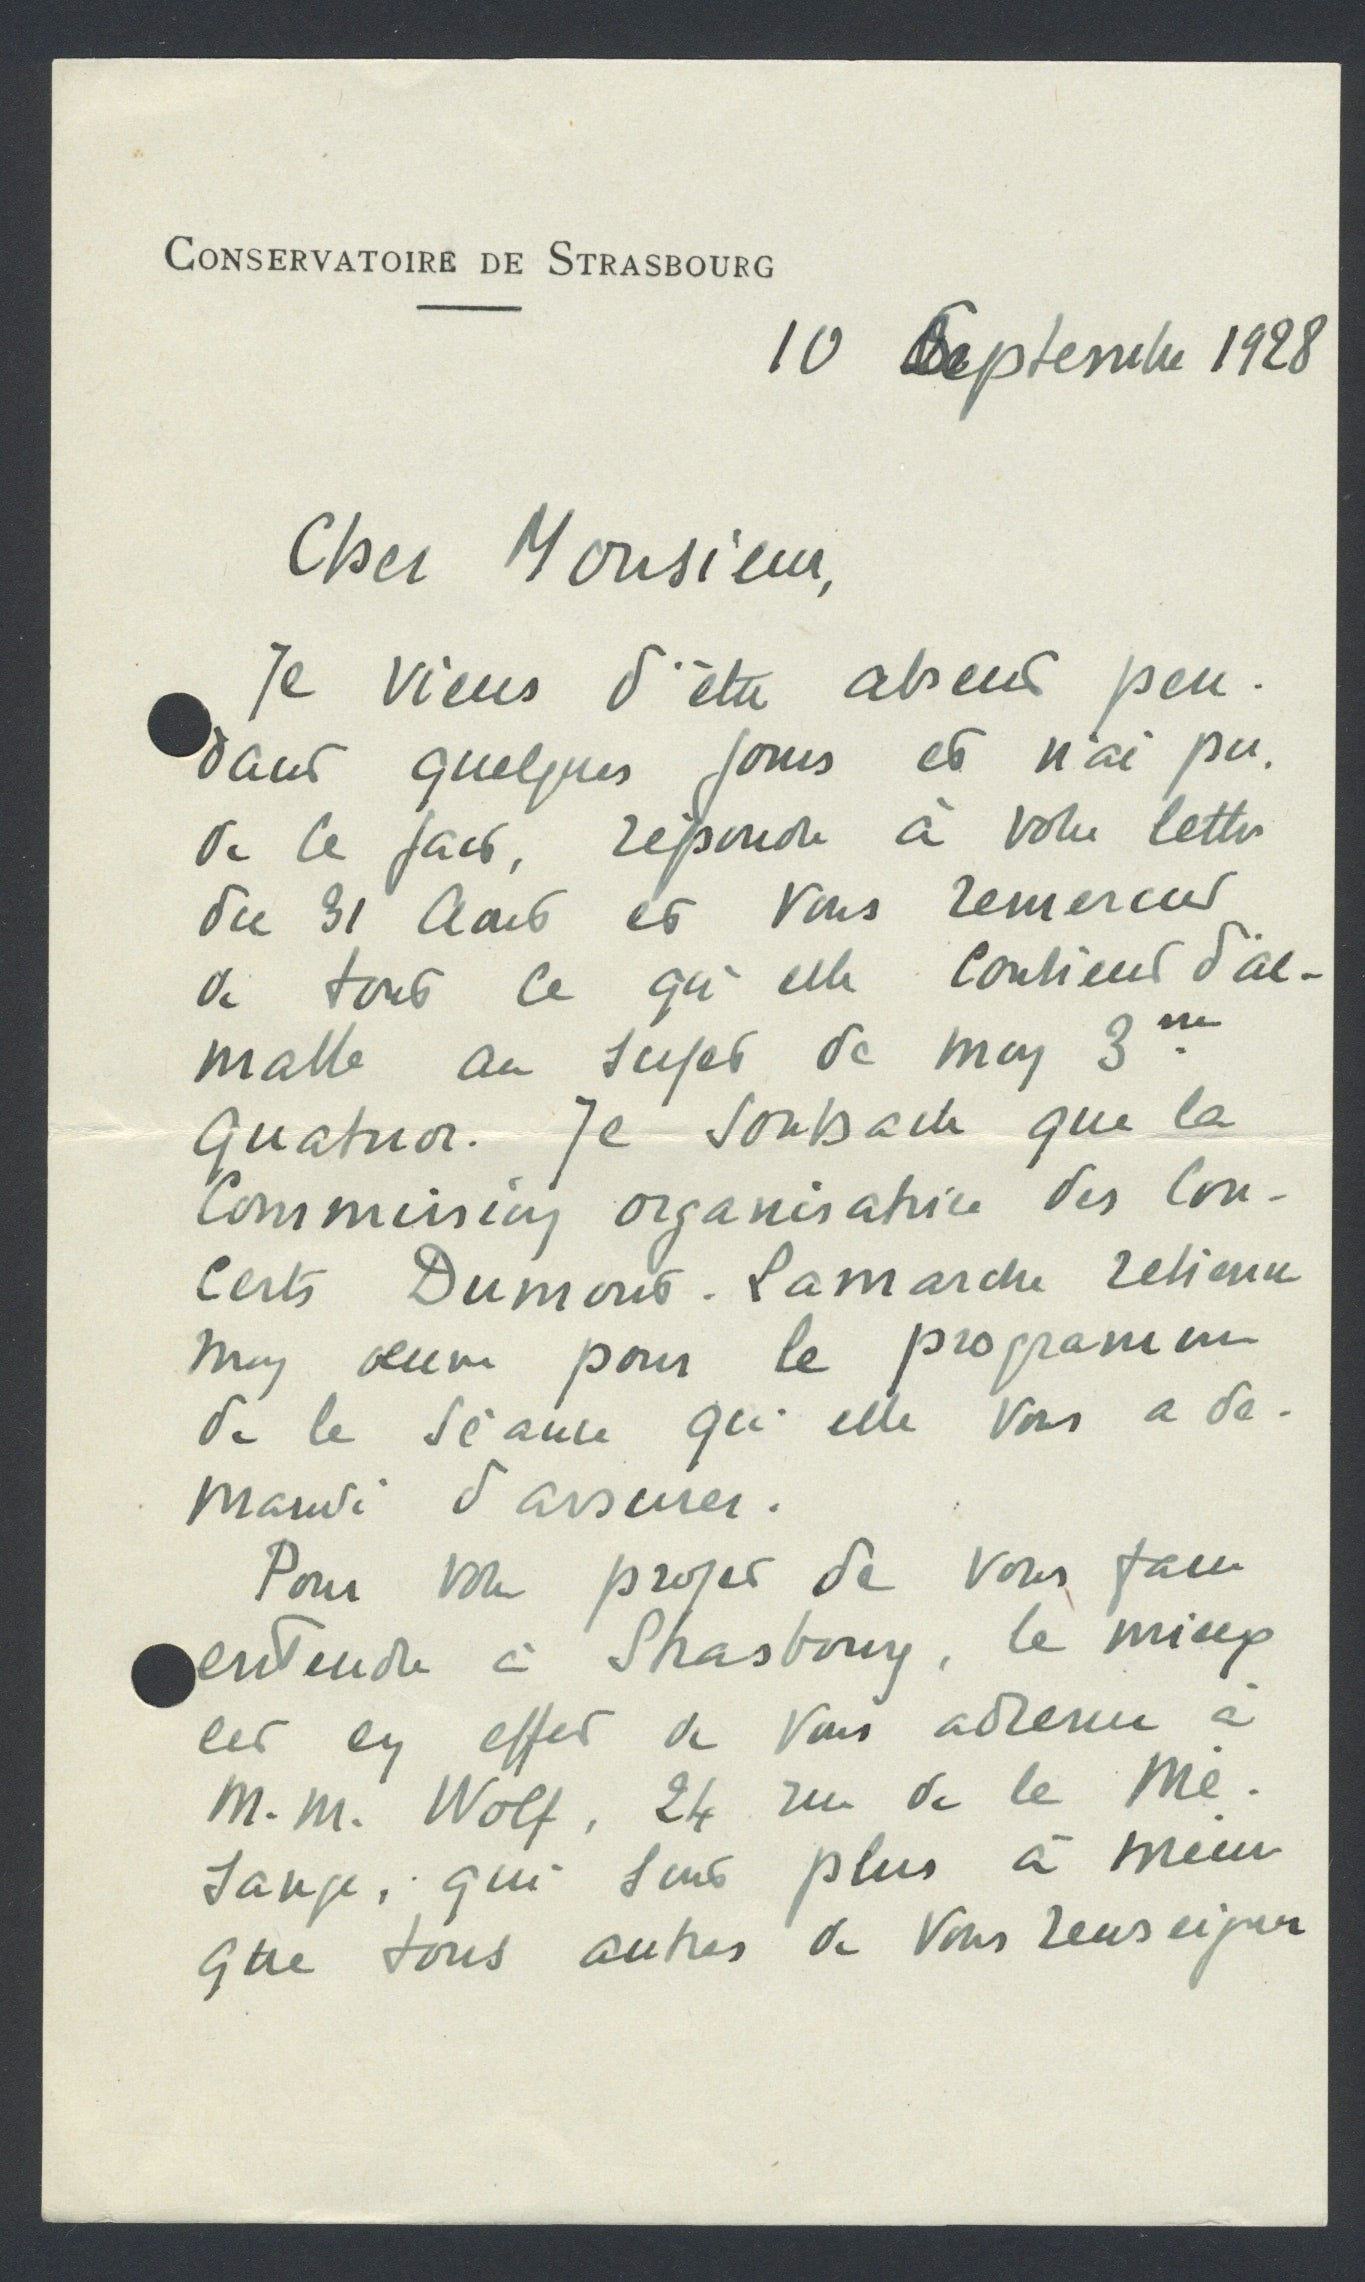 CONSERVATOIRE DE STRASBOURG
10 Septembre 1928
Cher Monsieur,
Je viens d'être absent pen-
dant quelques jours et n'ai pu,
de ce fait, répondre à votre lettre
du 31 Août et vous remercier
de tout ce qu'elle contient d'ai-
mable au sujet de mon 3me
Quatuor. Je souhaite que la
Commission organisatrice des Con-
certs Dumont-Lamarche retienne
mon œuvre pour le programme
de la séance qu'elle vous a de-
mandé d'assurer.
Pour votre projet de vous faire
entendre à Strasbourg, le mieux
est en effet de vous adresser à
M.M. Wolf, 24 rue de la Mé-
sange, qui sont plus à même
que tous autres de vous renseigner